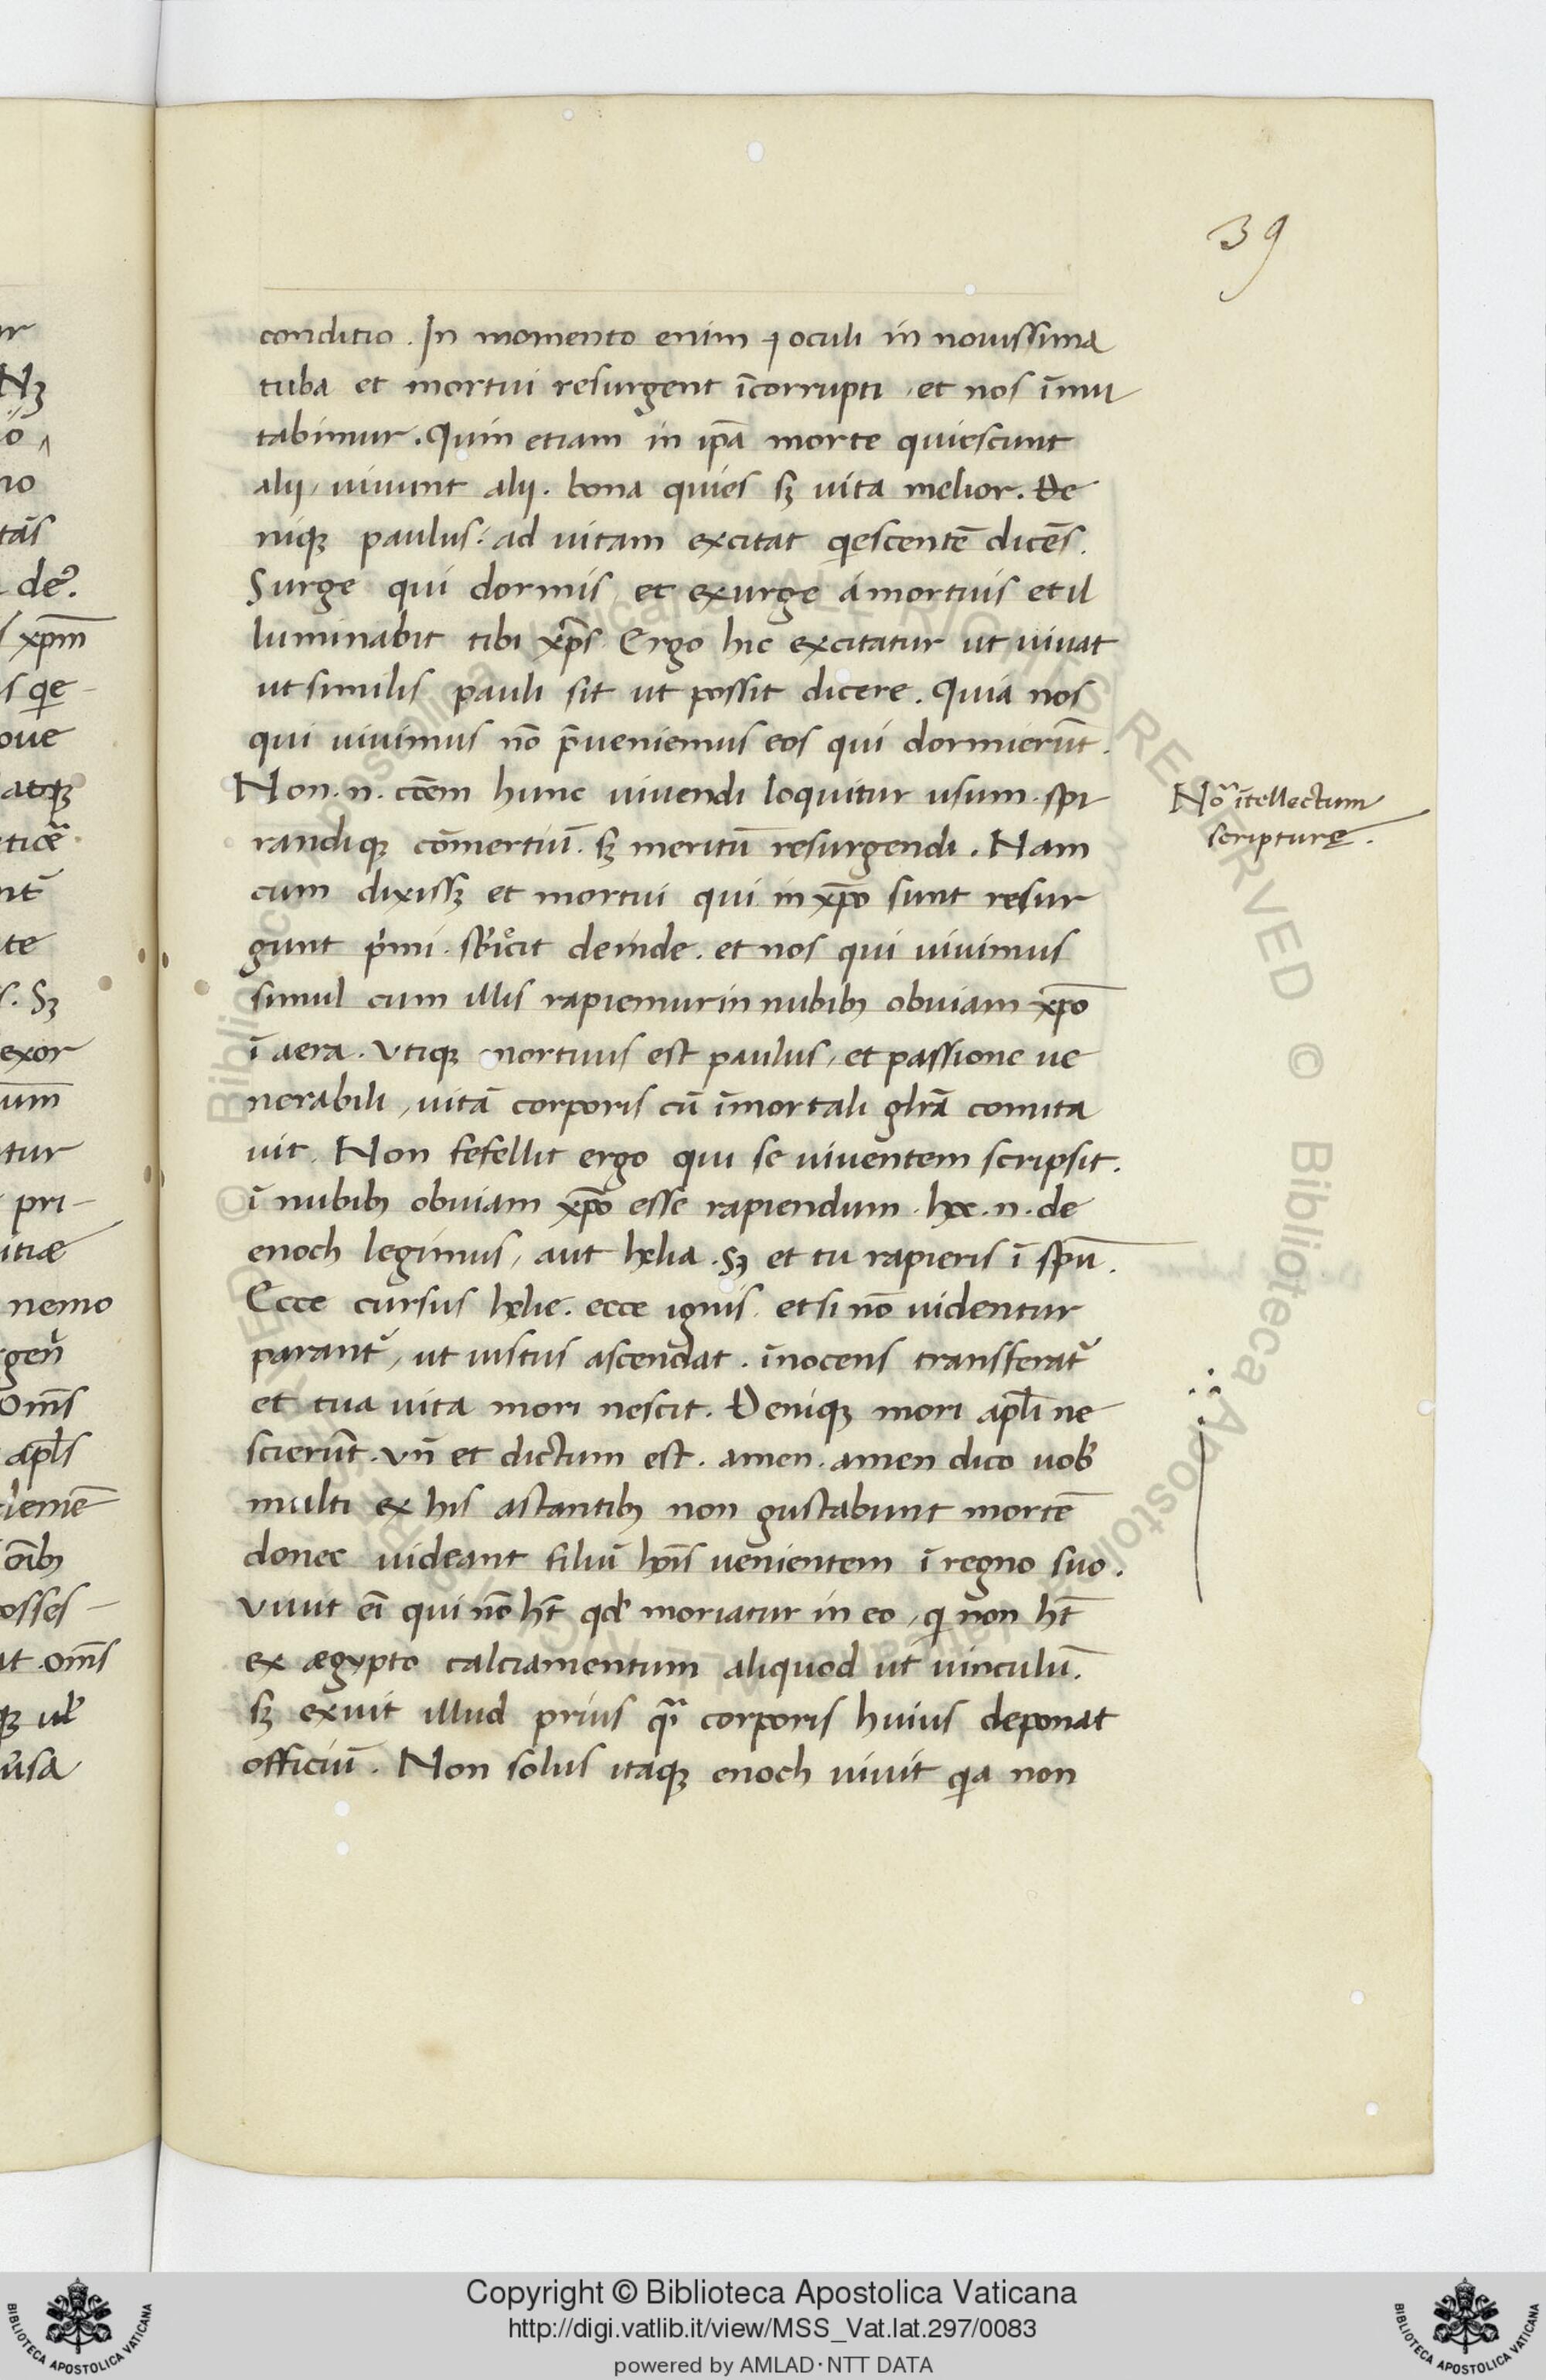 39
conditio. In momento enim ⁊ oculi in nouissima
tuba et mortui resurgent īcorrupti, et nos īmu
tabimur. Quin etiam in ip̄a morte quiescunt
alij, uiuunt alij. bona quies sꝫ uita melior. De
niqꝫ paulus: ad uitam excitat qescentē dicēs.
Surge qui dormis, et exurge a mortuis et il
luminabit tibi xp̄s Ergo hic excitatur ut uiuat
ut similis pauli sit ut possit dicere. Quia nos
qui uiuimus nō p̄ueniemus eos qui dormierūt.
Non .n. cōem hunc uiuendi loquitur usum. spi
randiqꝫ cōmertiū. sꝫ meritū resurgendi. Nam
cum dixissꝫ et mortui qui in xp̄o sunt resur
gunt p̍mi. deinde. et nos qui uiuimus
simul cum illis rapiemur in nubibꝫ obuiam xp̄o
ī aera. Utiqꝫ mortuus est paulus, et passione ue
nerabili, uitā corporis cū īmortali glr̄ā comuta
uit. Non fefellit ergo qui se uiuentem scripsit.
ī nubibꝫ obuiam xp̄o esse rapiendum. hoc .n. de
enoch legimus, aut helia. Sꝫ et tu rapieris ī sp̄u.
Ecce cursus helie. ecce ignis. et si nō uidentur
parant᷑, ut iustus ascendat. īnocens transferat᷑
et tua uita mori nescit. Deniqꝫ mori apl̄i ne
scierūt. Un̄ et dictum est. amen. amen dico uob̍
multi ex his astantibꝫ non gustabunt mortē
donec uideant filiū hoīs uenientem ī regno suo.
Uiuit eī qui nō ht̄ qd̍ moriatur in eo, q non ht̄
ex ægypto calciamentum aliquod ut uinculū.
sꝫ exuit illud prius qᷓ corporis huius deponat
officiū. Non solus itaqꝫ enoch uiuit qa non
Noᷓ ītellectum
scripturę.
Copyright © Biblioteca Apostolica Vaticana
http://digi.vatlib.it/view/MSS_Vat.lat.297/0083
powered by AMLAD·NTT DATA
BIBLIOTECA APOSTOLICA VATICANA
BIBLIOTECA APOSTOLICA VATICANA